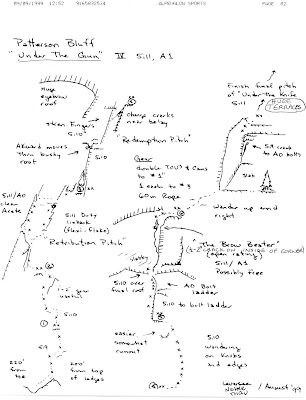 09/09/1999 17:52 9165832534 ALPENGLOW SPORTS PAGE 02
Patterson Bluff
"Under The Gun" IV 5.11, A1
Huge
eyebrow
roof
Thin Fingers
5.10
Change cracks
near belay
Finish final pitch
of "Under the Knife"
5.11
HUGE
TERRACES
"Redemption Pitch"
Akward moves
thru bushy
roof
5.10
Gear
double TCU's & Cams
to #1"
1 each to #3
60m Rope
5.9 crack
to A0 bolts
Slab
5.11/A0
clear
Arete
5.11 Dirty
lieback
(flexi-flake)
Wander up and
right
"Retribution Pitch"
"The Brow Beater"
(open rating)
5.11/A1
Possibly Free
5.10 over
final roof
A0 Bolt
ladder
5.10 to bolt ladder
1-2" gear
useful
5.10
easier
somewhat
runout
5.10
wandering
on Knobs
and edges
5.9
220'
from the
220'
from top
of ledges
/ August '99